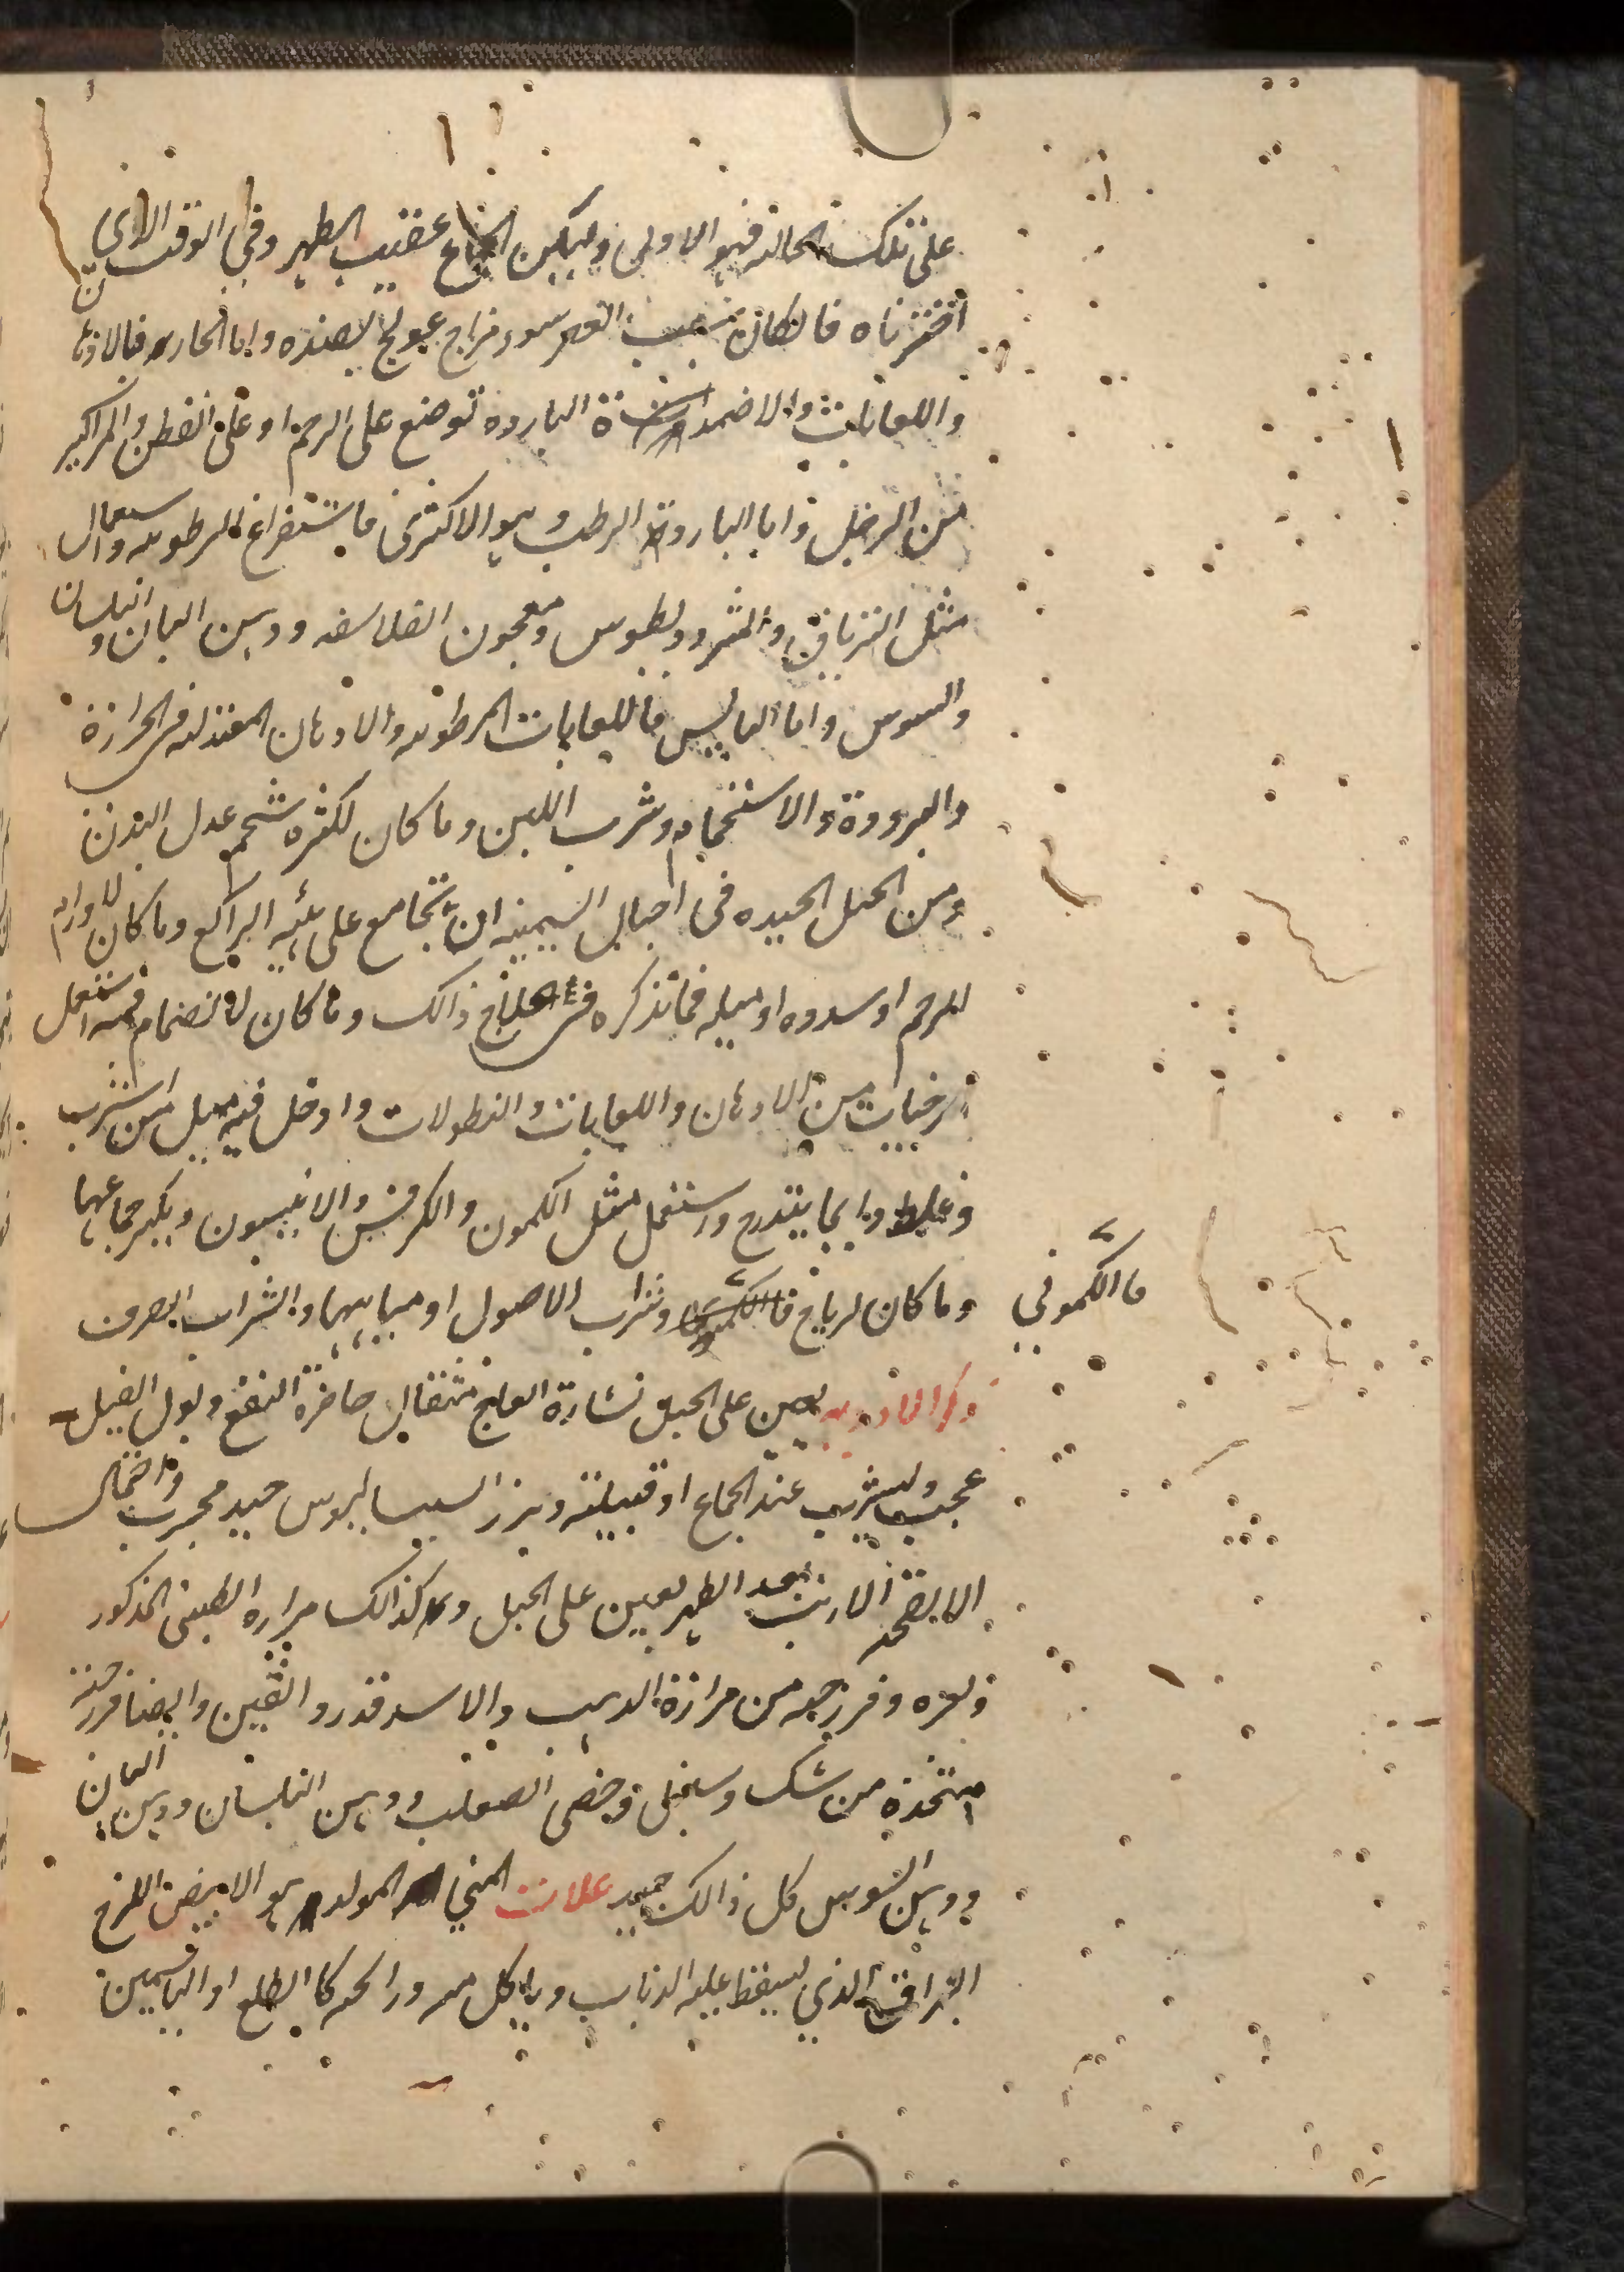 على تلك الحاله فهو الاولى وليكن الجماع عقيب الطهر وفي الوقت الاذي
اخترناه فانكان بسبب العقر سوء مزاج عولج بضده واما الحار فبالادهان
واللعابات والاضمدة الباردة توضع على الرحم او على القطن والمراكبر
من الرجل واما البارد الرطب وهو الاكثرى فاستفراغ الرطوبه واستعمال
مثل الترياق والمثروديطوس ومعجون الفلاسفه ودهن البان والبلسان
والسوس واما اليابس فاللعابات المرطوبه والادهان المعتدله في الحرارة
والبرودة والاستحمام وشرب اللبن وما كان لكثره شحم عدل البدن
ومن الحيل الجيده في احبال السمينه ان تجامع على هيئه الراكع وما كان لاورام
الرحم او سدوه او ميله فما تذكره في علاج ذالك وما كان لانضمام فمه استعمل
مرخيات من الادهان واللعابات والنطولات وادخل فيه ميل من اسرب
وغليظ دايما بتدرج واستعمل مثل الكمون والكرفس والانيسون ويكثر جماعها
وما كان لرياح فالكموني وشراب الاصول او مياهها والشراب الصرف
فالكموني
ذكر الادويه يعين على الحبل نشارة العاج مثقال حاضرة النفع وبول الفيل
عجيب وليشرب عند الجماع او قبيلته وبزر السيساليوس جيد مجرب واحتمال
الانفحه الارنب بعد الطهر يعين على الحبل وكذالك مراره الظبي المذكور
وبعره وفرزجه من مرارة الديب والاسد قدر دانقين وايضا فرزجه
متخذه من مسك وسنبل وخصى الثعلب ودهن البلسان ودهن البان
ودهن السوسن كل ذالك جيد علامت المني المولد هو الابيض اللزج
البراق الذي يسقط عليه الذباب وياكل منه ورائحته كالطلع او الياسمين